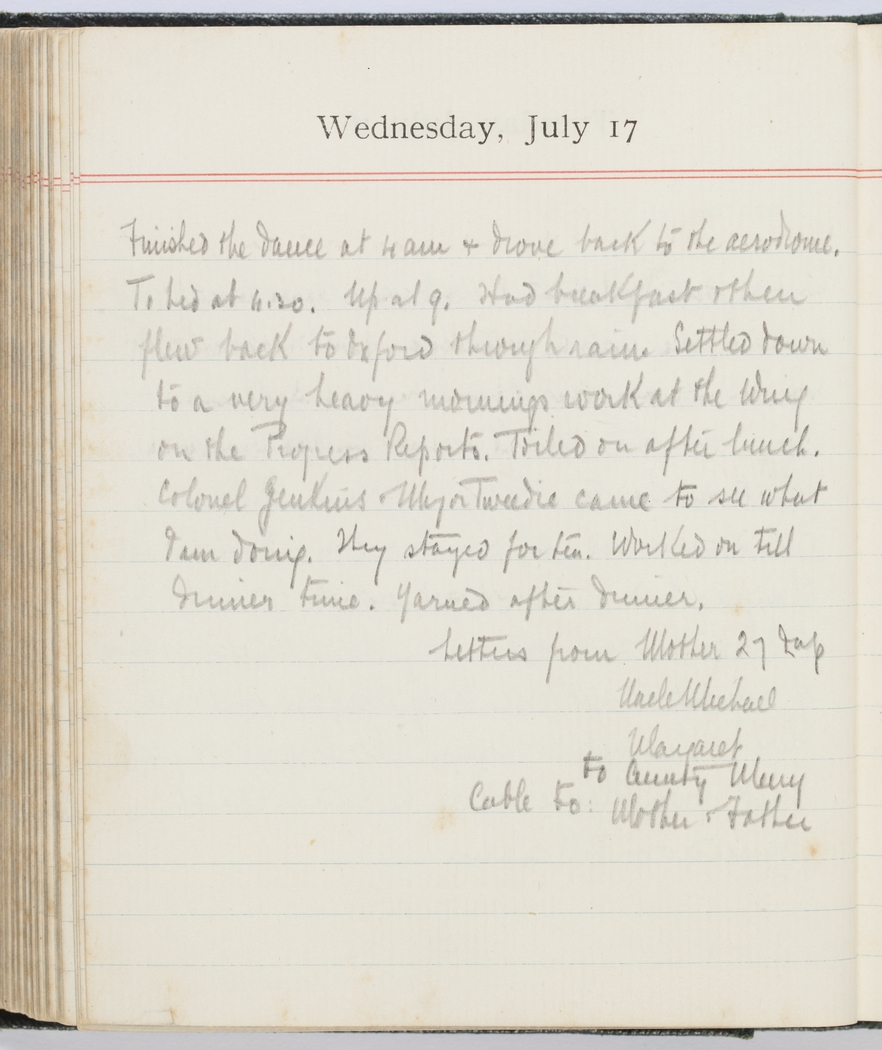 Wednesday, July 17
Finished the dance at 4 am + drove back to the aerodrome.
To bed at 4.30. Up at 9. Had breakfast + then
flew back to Oxford through rain. Settled down
to a very heavy mornings work at the Wing
on the Progress Reports. Toiled on after lunch.
Colonel Jenkins + Major Tweedie came to see what
I am doing. They stayed for tea. Worked on till
dinner time. Yarned after dinner.
Letters from Mother 27
Uncle Michael
Margaret
to Aunty Mary
Cable to: Mother + Father